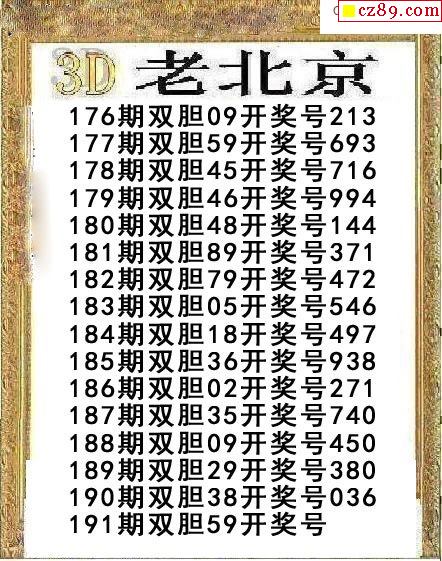 cz89.com
3D 老北京
176期双胆09开奖号213
177期双胆59开奖号693
178期双胆45开奖号716
179期双胆46开奖号994
180期双胆48开奖号144
181期双胆89开奖号371
182期双胆79开奖号472
183期双胆05开奖号546
184期双胆18开奖号497
185期双胆36开奖号938
186期双胆02开奖号271
187期双胆35开奖号740
188期双胆09开奖号450
189期双胆29开奖号380
190期双胆38开奖号036
191期双胆59开奖号